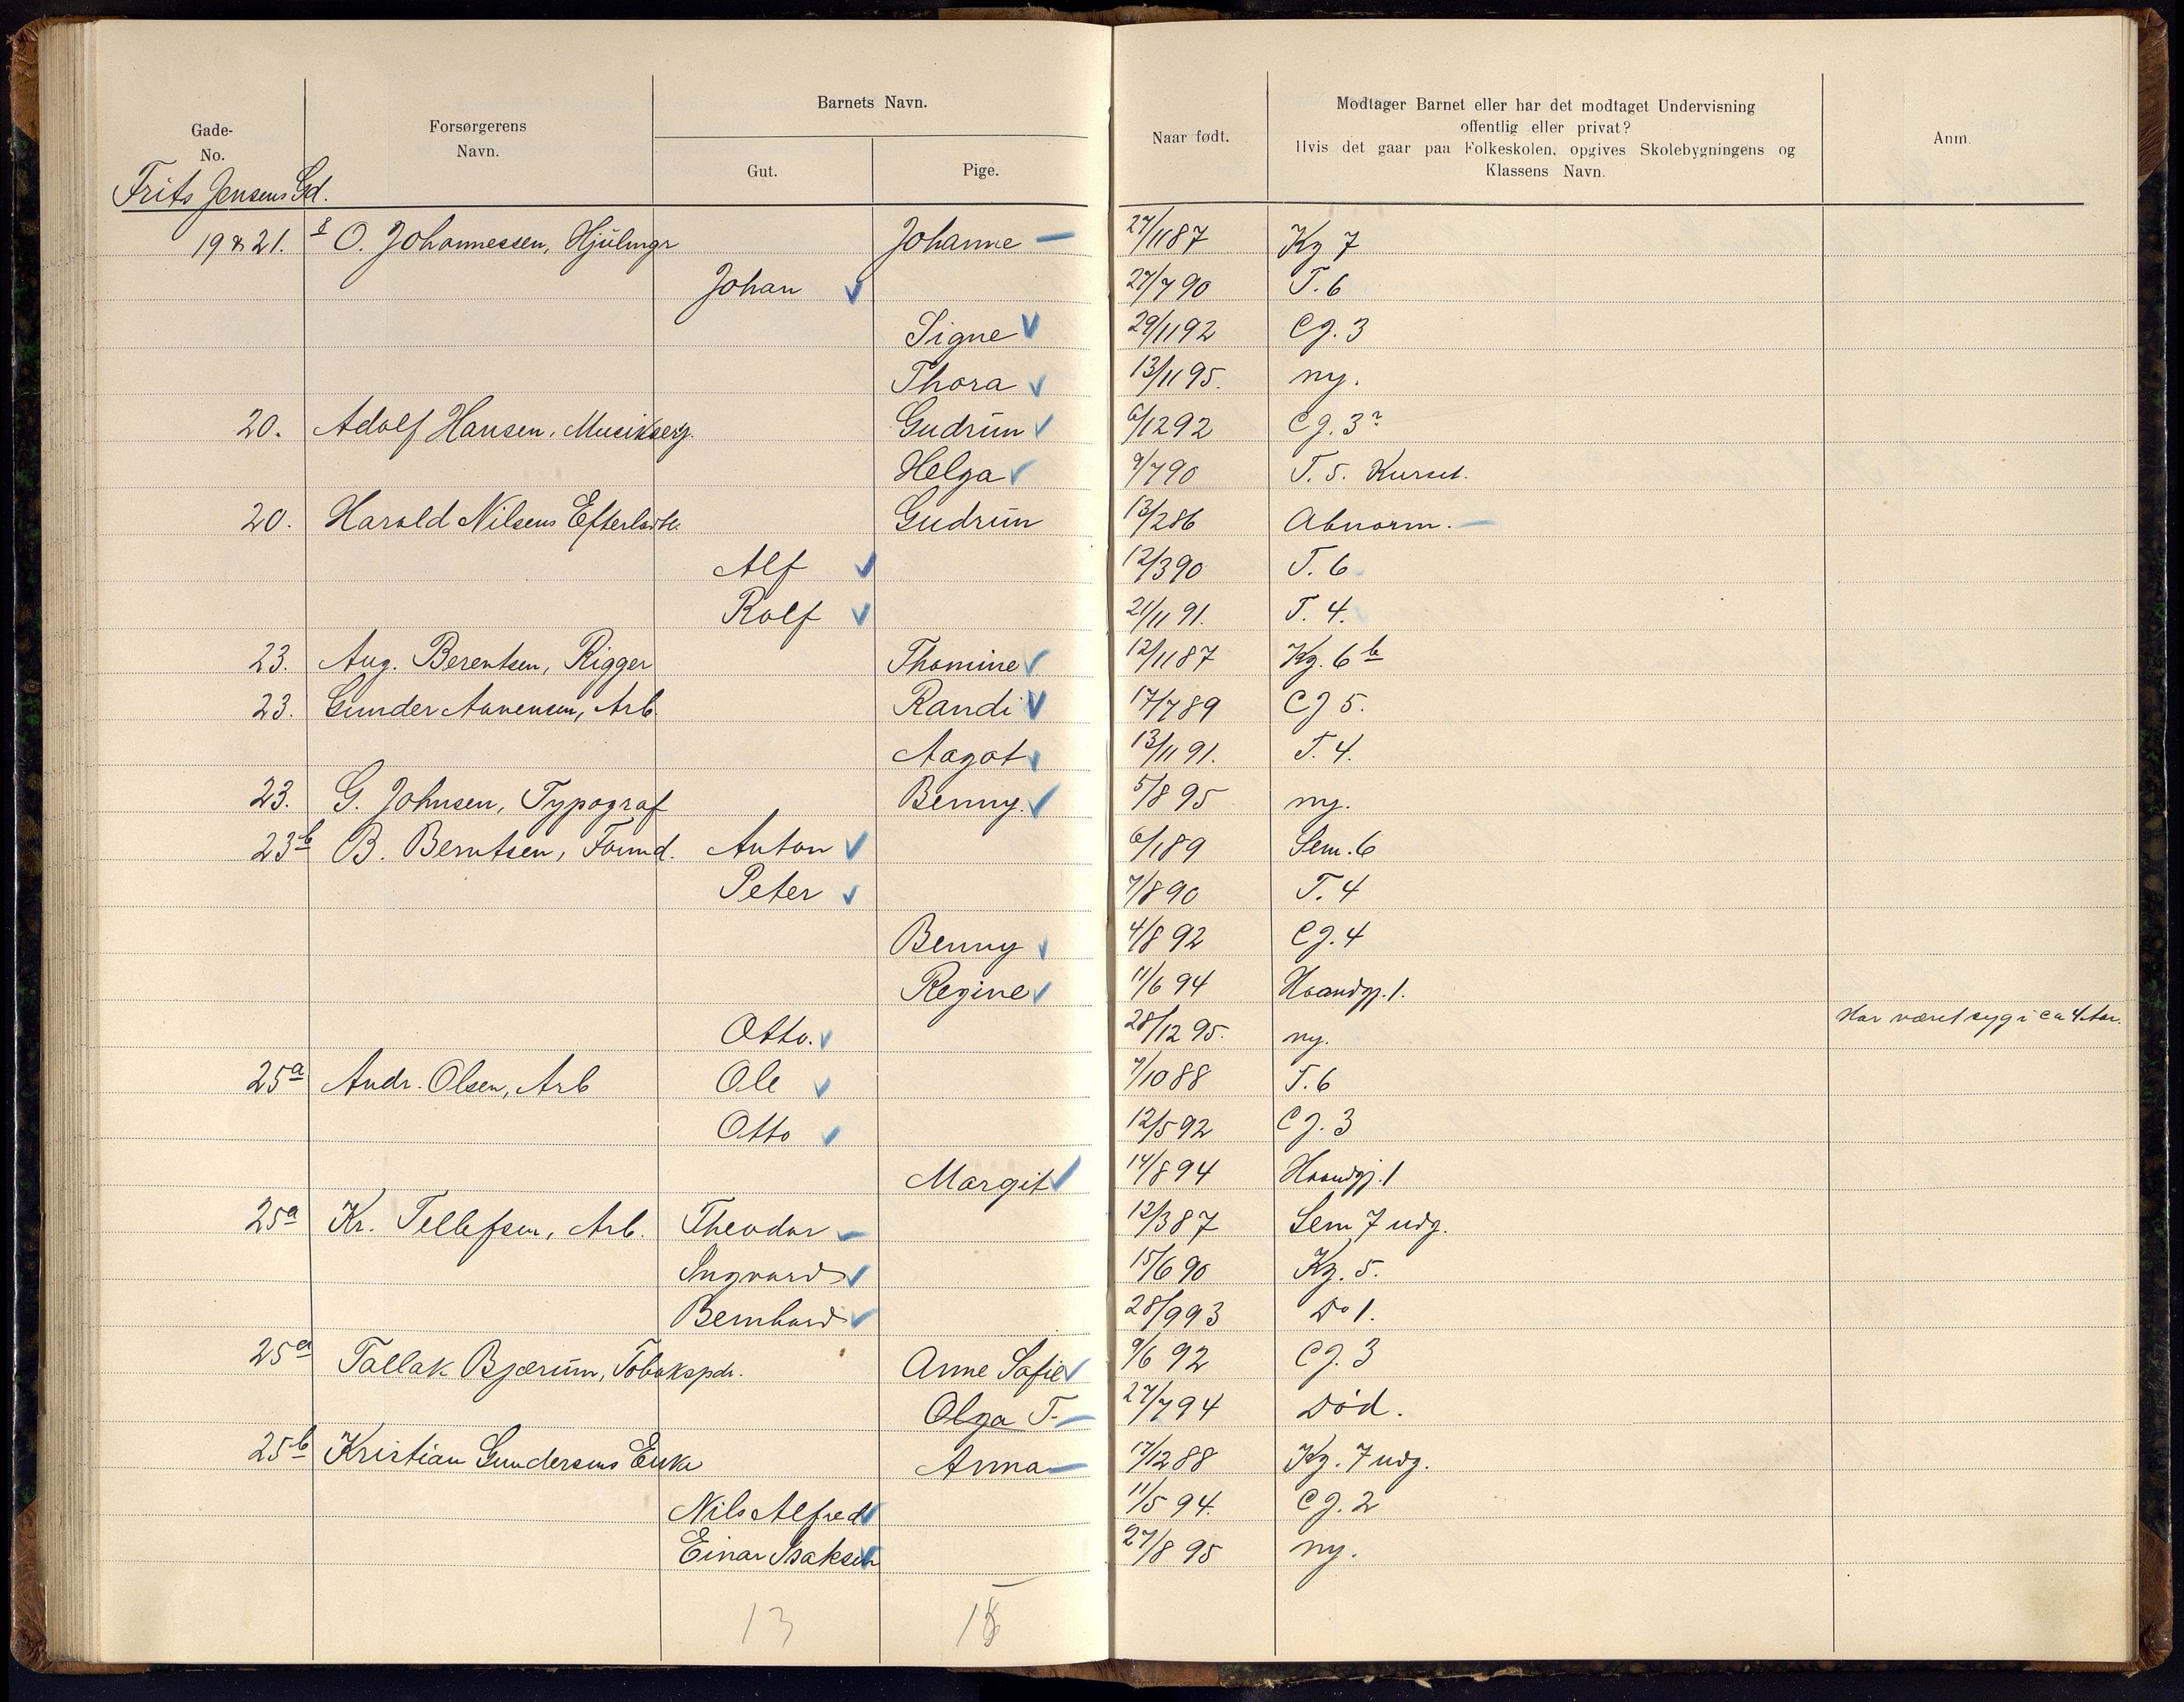 Gade-No. Forsørgerens Navn. Barnets Navn. Gut. Pige. Naar født. Modtager Barnet eller har det modtaget Undervisning offentlig eller privat? Hvis det gaar paa Folkeskolen, opgives Skolebygningens og Klassens Navn. Anm.
Frits Jensens Gd.
19 & 21. O. Johannessen, Johanne — 27/11 87 Kg 7
Johan 27/7 90 T. 6
Signe 29/11 92 Cg. 3
Thora 13/11 95. ny.
20. Adolf Hansen, Gudrun 6/12 92 Cg. 3
Helga 9/7 90 T. 5. Kurset.
20. Harald Nilsens Gudrun 13/2 86 Abnorm. —
Alf 12/3 90 T. 6
Rolf 21/11 91. T. 4.
23. Aug. Berentsen, Rigger Thomine 12/11 87 Kg. 6 b
23. Gunder Aanensen, Arb. Randi 17/7 89 Cg 5.
Aagot 13/11 91. T. 4.
23. G. Johnsen, Typograf Benny. 5/8 95 ny.
23b B. Berntsen, Formd. Anton 6/1 89 Sem. 6
Peter 7/8 90 T. 4
Benny 4/8 92 Cg. 4
Regine 11/6 94 Haandgj. 1.
Otto. 28/12 95. ny. Har været syg i ca 4 Aar.
25a Andr. Olsen, Arb Ole 7/10 88 T. 6
Otto 12/5 92 Cg. 3
Margit 14/8 94 Haandgj. 1
25a Kr. Tellefsen, Arb. Theodor — 12/3 87 Sem 7 udg.
Ingvard 15/6 90 Kg. 5.
Bernhard 28/9 93 Do 1.
25a Tallak Bjærum, Anne Sofie 9/6 92 Cg. 3
Olga T. — 27/7 94 Død.
25b Kristian Gundersens Enke Anna — 17/12 88 Kg. 7 udg.
Nils Alfred 11/5 94. Cg. 2
Einar Isaksen 27/8 95 ny.
13